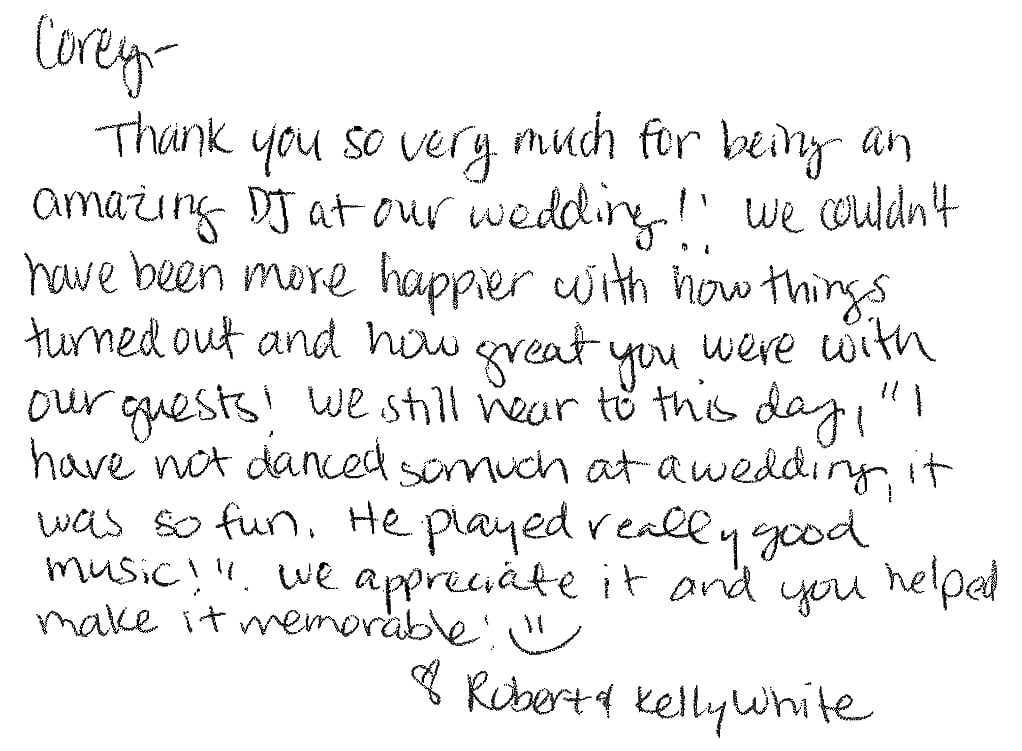 Corey-
Thank you so very much for being an
amazing DJ at our wedding!! We couldn't
have been more happier with how things
turned out and how great you were with
our guests! We still hear to this day, "I
have not danced so much at a wedding, it
was so fun. He played really good
music!". We appreciate it and you helped
make it memorable!
Robert & Kelly White